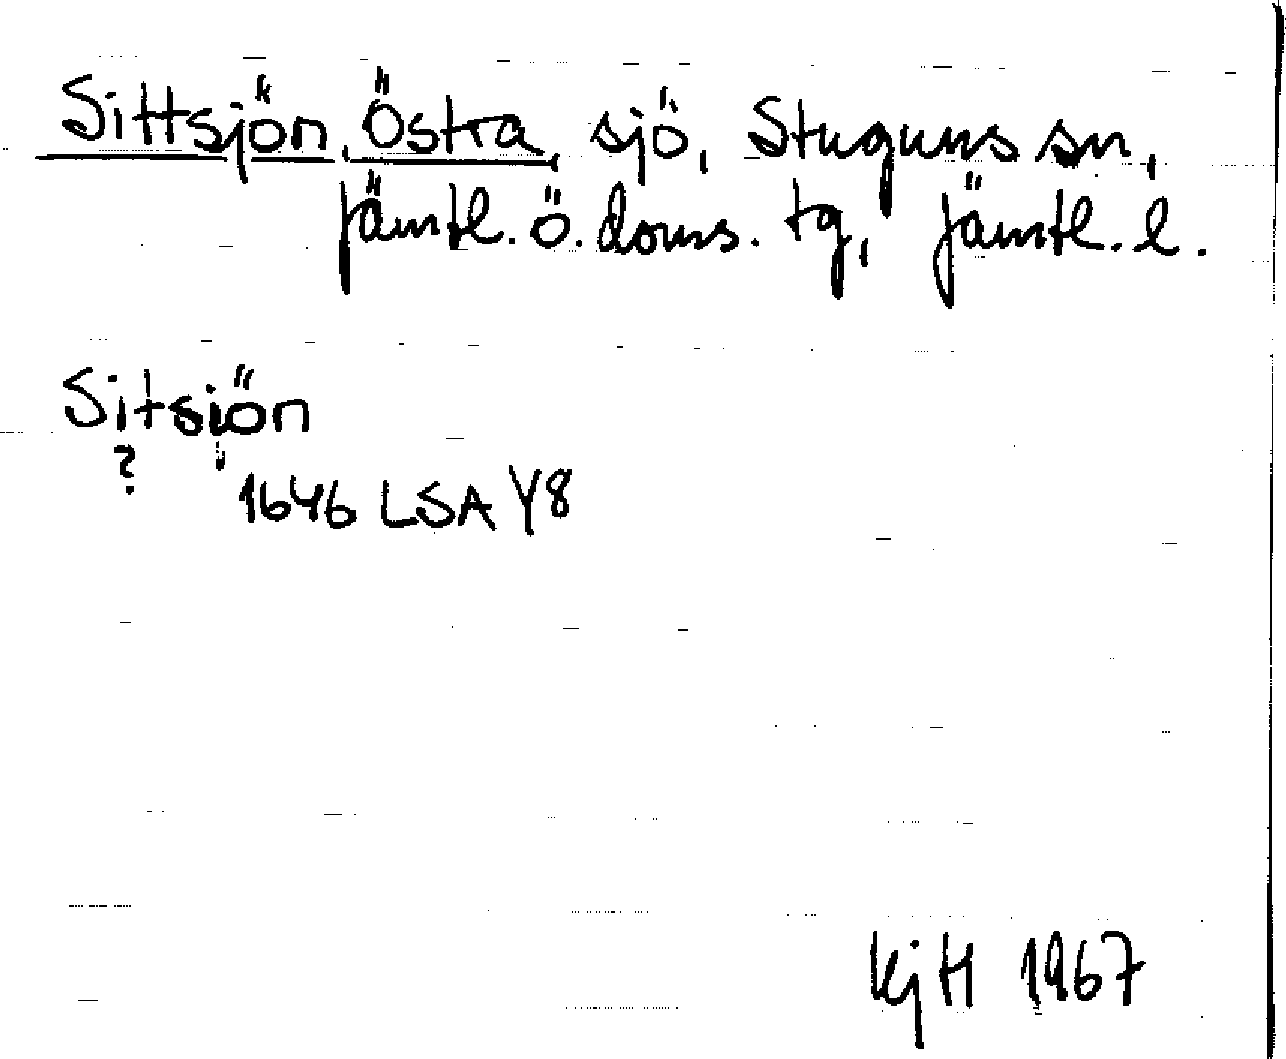 Sittsjön, Östra, sjö, Stuguns sn,
Jämtl. ö. doms. tg, Jämtl. l.
Sitsiön
? "
1646 LSA Y8
KjH 1967